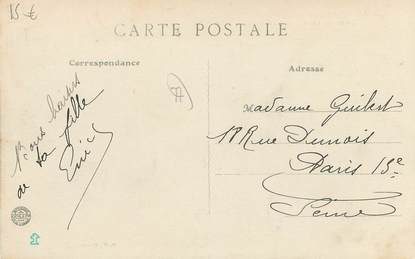 15 €
CARTE POSTALE
Correspondance
Adresse
de ta fille
Madame Guibert
18 Rue Dunois
Paris 13e
Seine